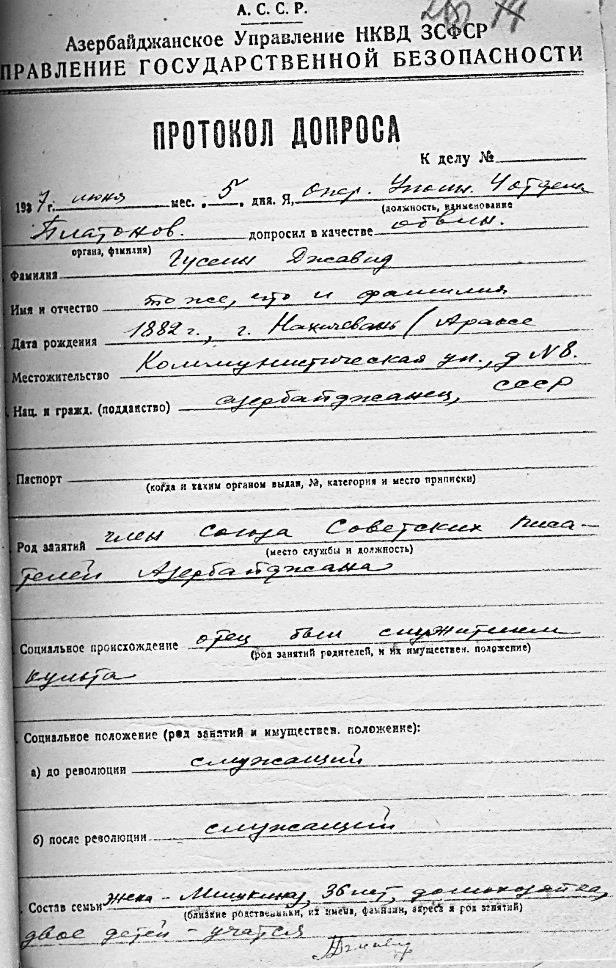 А. С. С. Р.
Азербайджанское Управление НКВД ЗСФСР
ПРАВЛЕНИЕ ГОСУДАРСТВЕННОЙ БЕЗОПАСНОСТИ
ПРОТОКОЛ ДОПРОСА
К делу №
1937 г. июня мес. 5 дня. Я, Опер. Уполн. 4 отдела
(должность, наименование
Платонов. допросил в качестве обвин.
органа, фамилия)
Фамилия Гусейн Джавид
Имя и отчество то же, что и фамилия
Дата рождения 1882 г., г. Нахичевань / Араксе
Местожительство Коммунистическая ул., д N 8.
Нац. и гражд. (подданство) азербайджанец, СССР
Паспорт
(когда и каким органом выдан, №, категория и место приписки)
Род занятий член Союза Советских Писа-
(место службы и должность)
телей Азербайджана
Социальное происхождение отец был служителем
(род занятий родителей, и их имуществен. положение)
культа
Социальное положение (род занятий и имуществен. положение):
а) до революции служащий
б) после революции служащий
Состав семьи жена - Мишкиназ, 36 лет, домохозяйка,
(близкие родственники, их имена, фамилии, адреса и род занятий)
двое детей - учатся